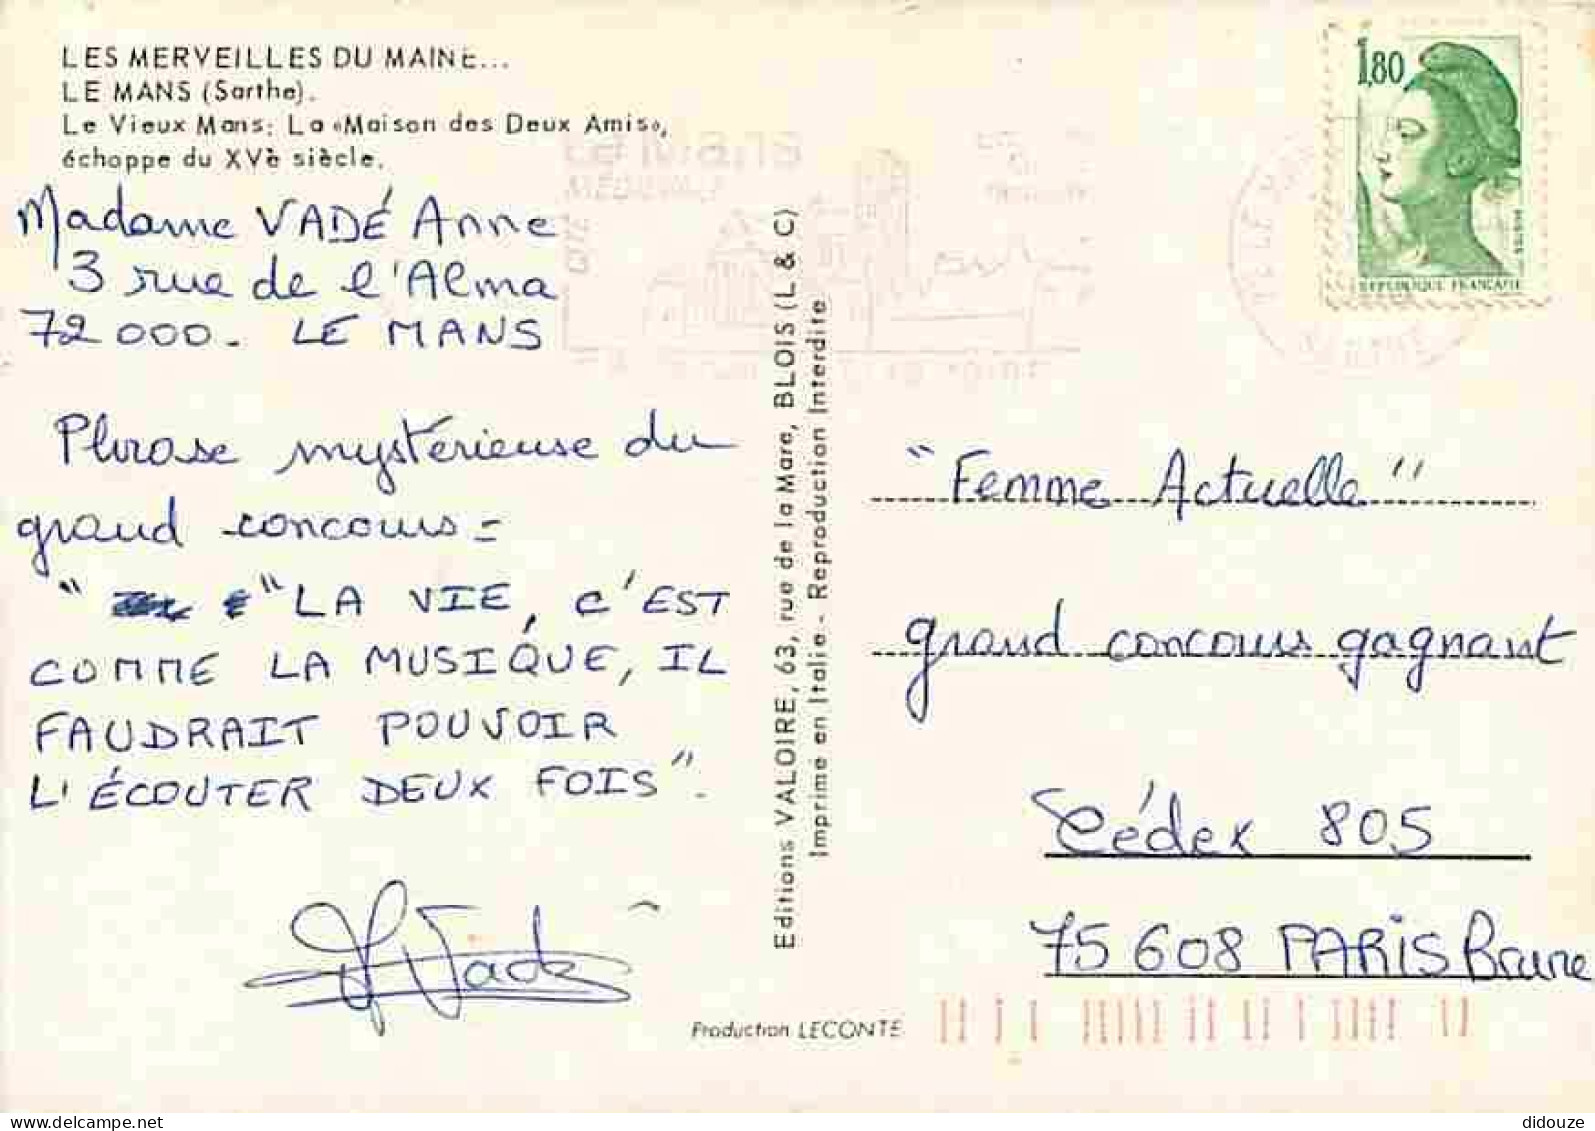 LES MERVEILLES DU MAINE...
LE MANS (Sarthe).
Le Vieux Mans: La «Maison des Deux Amis»,
échoppe du XVè siècle.
Madame VADÉ Anne
3 rue de l'Alma
72000. LE MANS
Phrase mystérieuse du
grand concours =
" "LA VIE, C'EST
COMME LA MUSIQUE, IL
FAUDRAIT POUVOIR
L'ÉCOUTER DEUX FOIS".
Vadé
Editions VALOIRE, 63, rue de la Mare, BLOIS (L & C)
Imprimé en Italie - Reproduction Interdite
Production LECONTE
1,80
REPUBLIQUE FRANÇAISE
"Femme Actuelle"
grand concours gagnant
Cédex 805
75608 PARIS Brune
delcampe.net
didouze